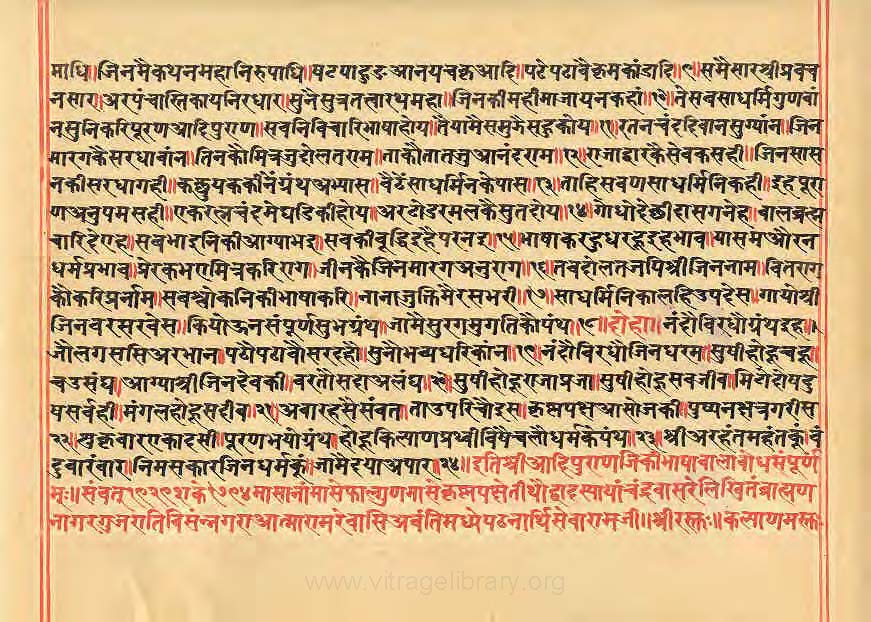 माधि॥जिनमैकथनमहानिरुपाधि॥षटपाहुडआनयचक्रआदि॥पढेपढावैक्रमकांडादि॥९॥समैसारश्रीप्रवच
नसार॥अरपंचास्तिकायनिरधार॥सुनैसुत्रतत्वारथमहा॥जिनकीमहीमाजायनकहा॥१०॥तेसबसाधर्मिगुणवां
नसुनिकरिपूरणआदिपुराण॥सबनिविचारिभाषाहोय॥तौयामैसमुकैसहुकोय॥११॥रतनचंददिवानसुग्यांन॥जिन
मारगकैसरधावांन॥तिनकौमित्रजुदोलतराम॥ताकौतातजुआनंदराम॥१२॥राजाद्वारकैसेवकसही॥जिनसास
नकीसरधागही॥कछुयककीनेंग्रंथअभ्यास॥बैठेंसाधर्मिनकेपास॥१३॥ताहिसबणसाधर्मिनिकही॥इहपूरा
णअनुपमसही॥एकरत्नचंदमेघडिकीहोय॥अरटोडरमलकैसुतदोय॥१४॥गोधोदेछीदासगनेह॥बालब्रह्म
चारिदेएह॥सबभाइनिकीआग्याभइ॥सबकीबुद्धिइहैपरनइ॥१५॥भाषाकरहुधरहुइहभाव॥यासमऔरन
धर्मप्रभाव॥प्रेरकभएमित्रकरिराग॥जीनकैजिनमारगअनुराग॥१६॥तबदोलतजपिश्रीजिननाम॥वितराग
कौंकरिप्रनांम॥सबश्लोकनिकीभाषाकरि॥नानाजुक्तिमैरसभरी॥१७॥साधर्मिनिकालहिउपदेस॥गायोश्री
जिनवरसरवेस॥कियोऊनसंपूर्णसुभग्रंथ॥जामैसुरगमुगतिकौपंथ॥१८॥दोहा॥नंदौविरधौग्रंथइह॥
जौलगससिअरभान॥पढौपढावौसरदहौ॥सुनौभव्यधरिकांन॥१९॥नंदौविरधोजिनधरम॥सुषीहोहुचहू॥
चउसंघ॥आग्याश्रीजिनदेवकी॥वरतौसदाअलंघ॥२०॥सुषीहोहूराजाप्रजा॥सुषीहोहूसबजीव॥मिटोदोषदु
षसर्वही॥मंगलहोहूसदीव॥२१॥अठारहसैसंवत॥ताउपरिचौइस॥कृस्नपक्षआसोजकी॥पुष्यनक्षत्रगरीस॥
२२॥शुक्रवारएकादसी॥पूरणभयोग्रंथ॥होहूकिल्याणप्रथ्वीविषै॥चलौधर्मकेपंथ॥२३॥श्रीअरहंतमहंतकूं॥वं
दुवारंवार॥निमसकारजिनधर्मकूं॥जामैदयाअपार॥२४॥इतिश्रीआदिपुराणजिकीभाषावालाबोधसंपूर्ण
मः॥संवत्१९२९शके१७९४मासानांमासेफाल्गुणमासेकृस्नपक्षेतीथौद्वादस्यायांचंद्रवासरेलिखितंब्राह्मण
नागरगुजरातिविसंन्नगराआत्मारामरेवासिअवंतिमध्येपठनार्थिसेवारामजी॥श्रीरस्तः॥कल्याणमस्तः
www.vitragelibrary.org